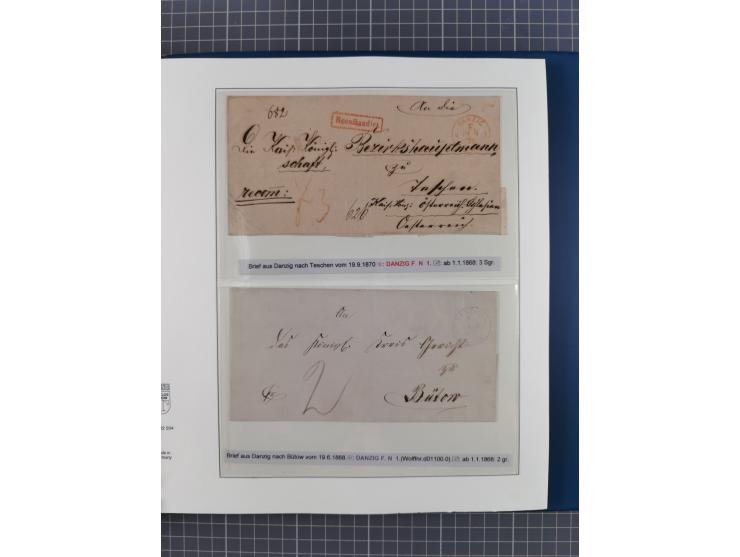 682
Recommandirt
An die
DANZIG
Kais. Königl. Bezirkshauptmann
schaft,
zu
recom:
Teschen.
626
Oesterreich.
Brief aus Danzig nach Teschen vom 19.9.1870 DANZIG F. N 1. ab 1.1.1868: 3 Sgr.
An
das Königl. Kreis Gericht
zu
2
Bütow
Brief aus Danzig nach Bütow vom 19.6.1868. DANZIG F. N 1.(Wolffnr.d01100.0). ab 1.1.1868: 2 gr.